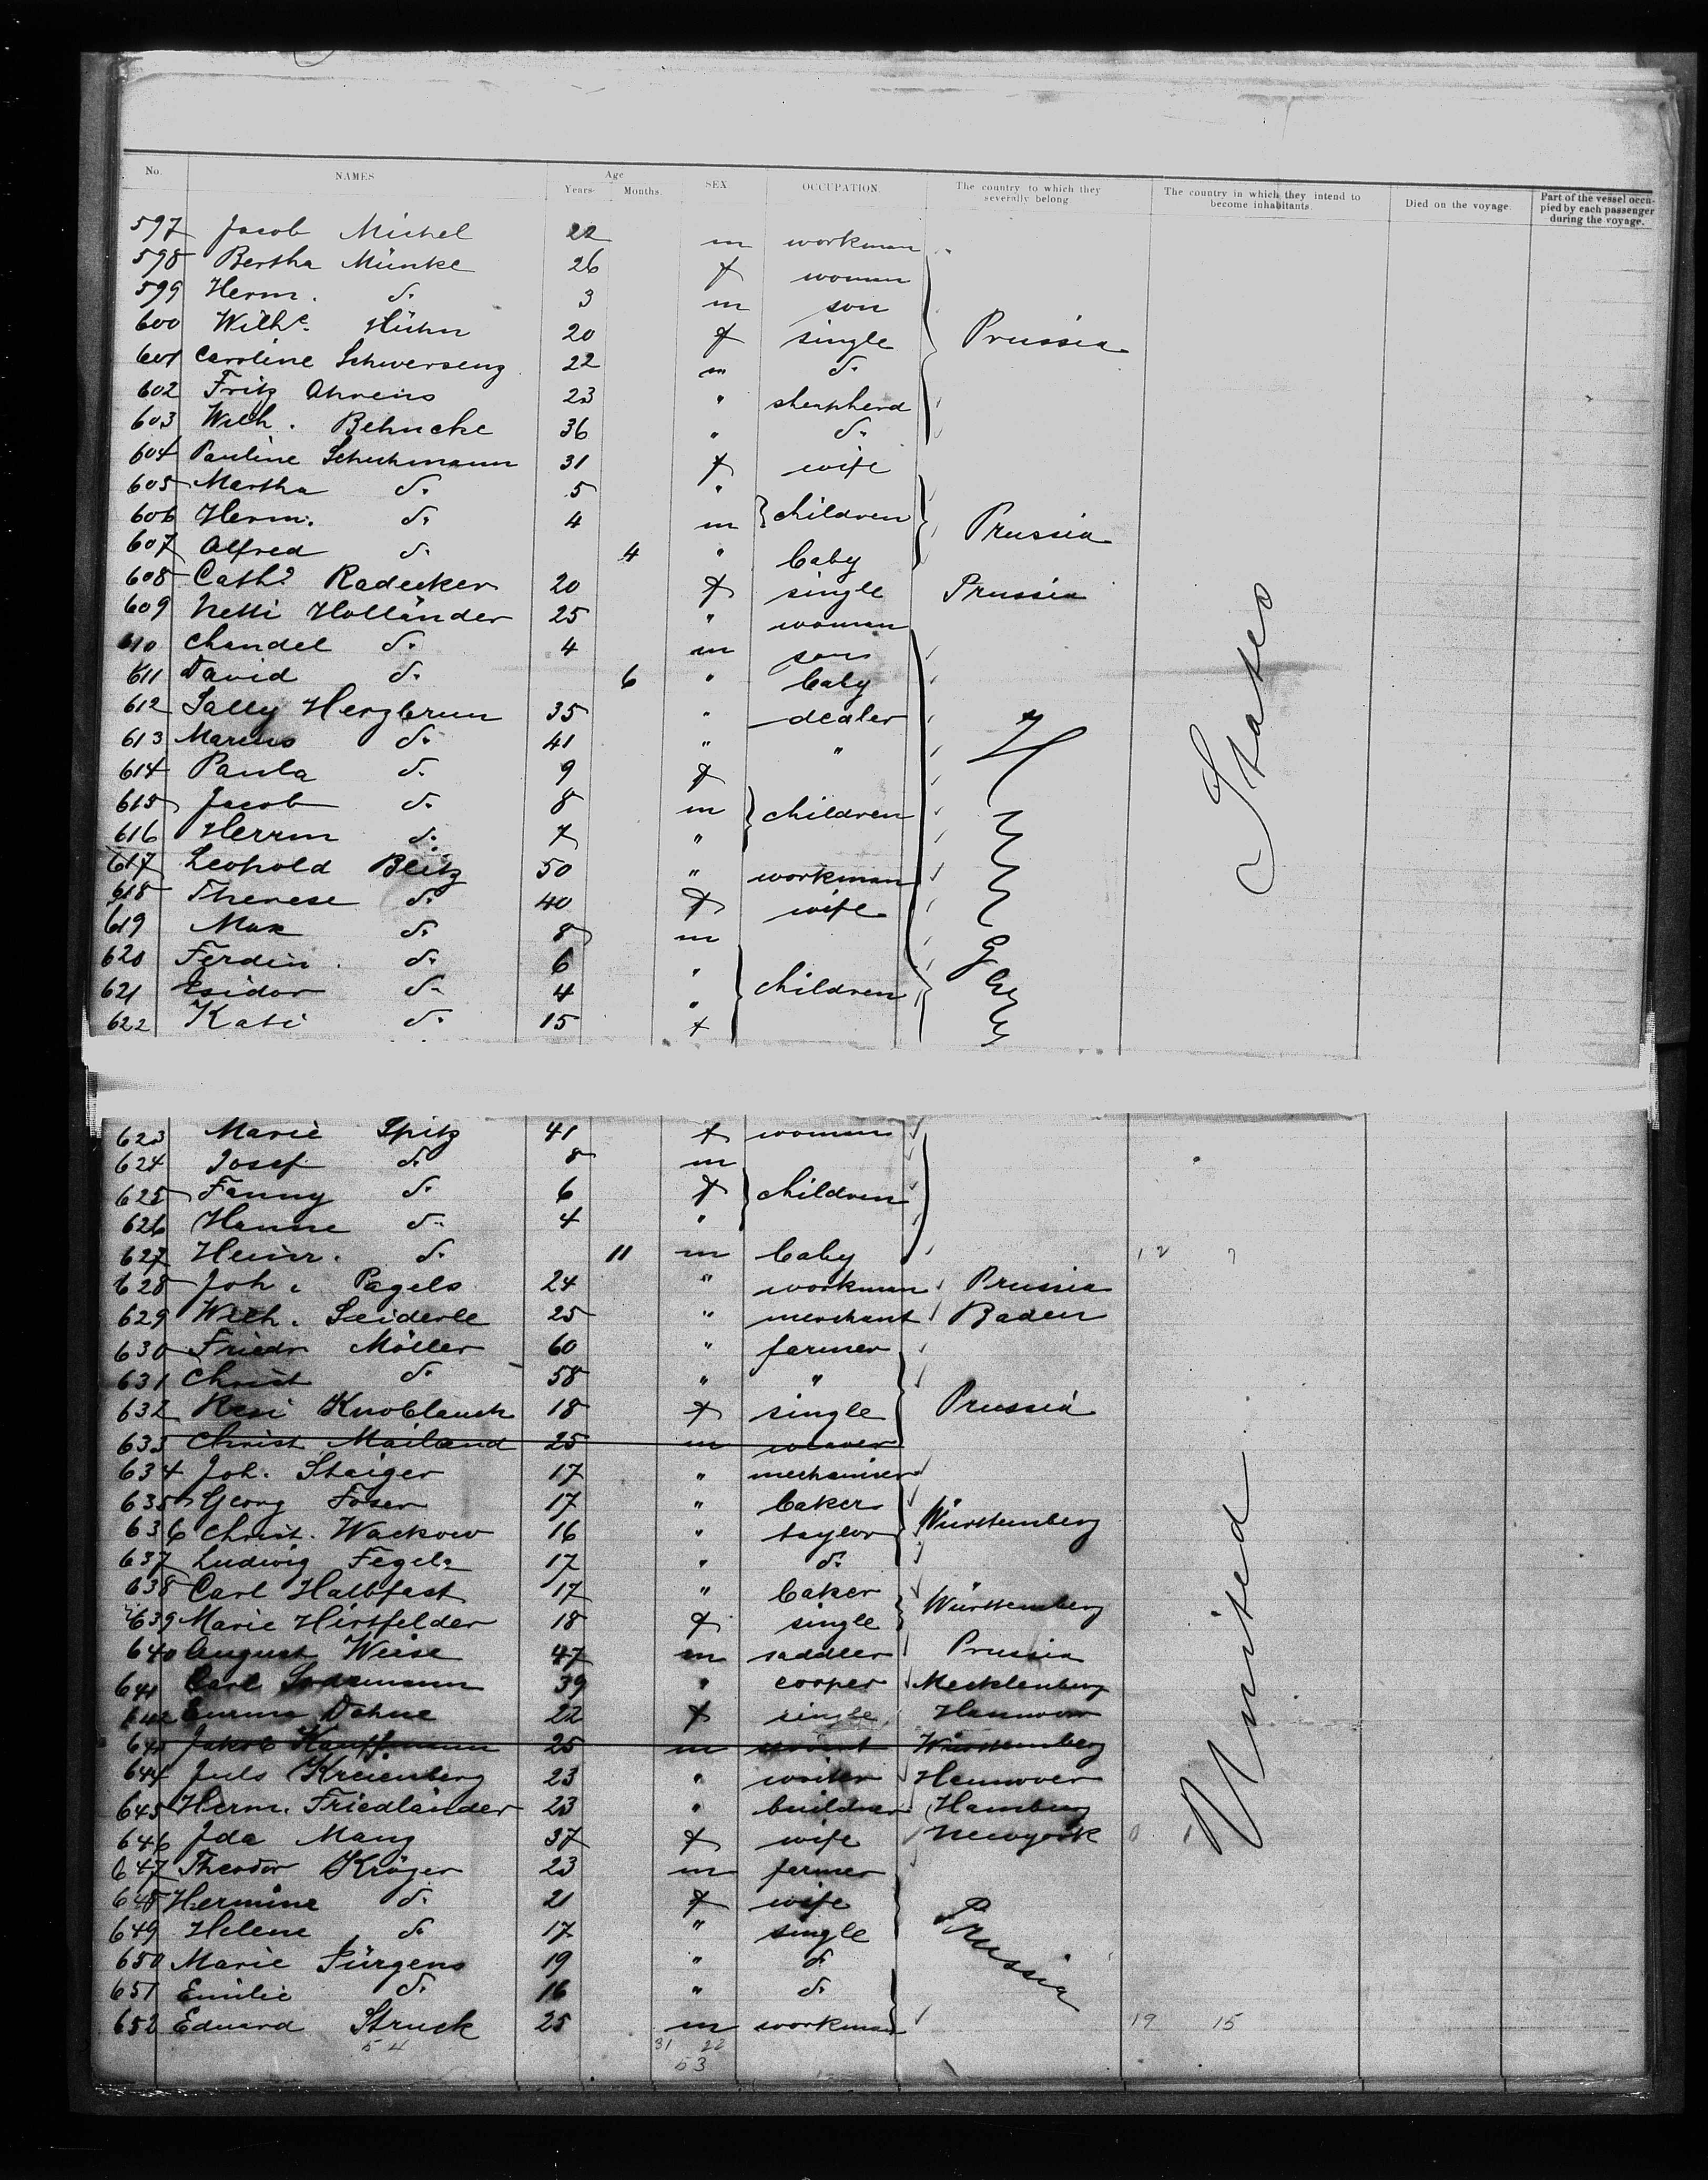 No. NAMES Age Years Months. SEX. OCCUPATION. The country to which they severally belong The country in which they intend to become inhabitants. Died on the voyage. Part of the vessel occupied by each passenger during the voyage.
597 Jacob Michel 22 m workman
598 Bertha Münke 26 f woman
599 Herm. do. 3 m son
600 Wilhe. Hühn 20 f single Prussia
601 Caroline Schwerseng 22 m do.
602 Fritz Ahrens 23 " shepherd
603 Wilh. Behncke 36 " do.
604 Pauline Schuhmann 31 f wife
605 Martha do. 5 "
606 Herm. do. 4 m children Prussia
607 Alfred do. 4 " baby
608 Cath. Radecker 20 f single Prussia
609 Netti Holländer 25 " woman
610 Chandel do. 4 m son
611 David do. 6 " baby
612 Sally Herzbrun 35 " dealer
613 Marcus do. 41 " "
614 Paula do. 9 f
615 Jacob do. 8 m children
616 Herrm do. 7 "
617 Leopold Blitz 50 " workman
618 Therese do. 40 f wife
619 Max do. 8 m
620 Ferdin. do. 6 "
621 Esidor do. 4 " children
622 Kati do. 15 f
Hungary
States
623 Marie Spitz 41 f woman
624 Josef do. 8 m
625 Fanny do. 6 f children
626 Hanne do. 4 "
627 Heinr. do. 11 m baby 12
628 Joh. Pagels 24 " workman Prussia
629 Wilh. Seiderle 25 " merchant Baden
630 Friedr Möller 60 " farmer
631 Christ do. 58 " "
632 Resi Knoblauch 18 f single Prussia
633 Christ Mailand 25 m weaver
634 Joh. Staiger 17 " mechaniker
635 Georg Foser 17 " baker
636 Christ. Wackow 16 " taylor Württemberg
637 Ludwig Fegele 17 " do.
638 Carl Halbfast 17 " baker
639 Marie Hirtfelder 18 f single Württemberg
640 August Weise 47 m saddler Prussia
641 Carl 39 " cooper Mecklenburg
642 Emma Dähne 22 f single Hannover
643 Jakob Kauffmann 25 m Württemberg
644 Juls Kreienberg 23 " writer Hannover
645 Herm. Friedländer 23 " Hamburg
646 Ida Mang 37 f wife Newyork 0 1
647 Theodor Kröger 23 m farmer
648 Hermine do. 21 f wife
649 Helene do. 17 " single
650 Marie Jürgens 19 " do.
651 Emilie do. 16 " do.
652 Eduard Struck 25 m workman 19 15
Prussia
United
54 31 22
53